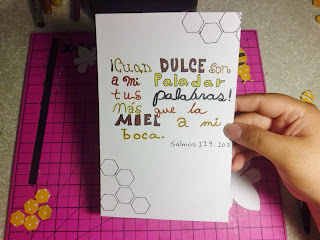 ¡Cuan DULCE son
a mi Paladar
tus palabras!
Más que la
MIEL a mi
boca.
Salmos 119:103